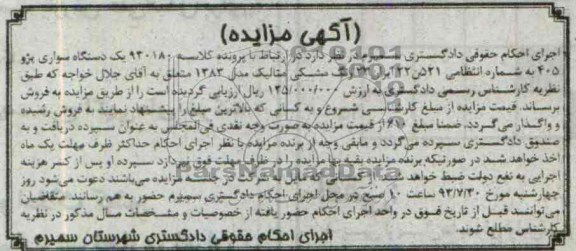 (آگهی مزایده)
اجرای احکام حقوقی دادگستری سمیرم در نظر دارد در ارتباط با پرونده کلاسه ۹۳۰۱۸۰ یک دستگاه سواری پژو
۴۰۵ به شماره انتظامی ۲۱۵ن۲۲ ایران مشکی متالیک مدل ۱۳۸۳ متعلق به آقای جلال خواجه که طبق
نظریه کارشناس رسمی دادگستری به ارزش ۱۳۵/۰۰۰/۰۰۰ ریال ارزیابی گردیده است را از طریق مزایده به فروش
برساند. قیمت مزایده از مبلغ کارشناسی شروع و به کسانی که بالاترین مبلغ را پیشنهاد نمایند به فروش رسیده
و واگذار می گردد. ضمنا مبلغ ۱۰٪ از قیمت مزایده به صورت وجه نقدی فی المجلس به عنوان سپرده دریافت و به
صندوق دادگستری سپرده می گردد و مابقی وجه از برنده مزایده با نظر اجرای احکام حداکثر ظرف مهلت یک ماه
اخذ خواهد شد در صورتیکه برنده مزایده بقیه بها مزایده را در ظرف مهلت فوق نپردازد سپرده او پس از کسر هزینه
اجرایی به نفع دولت ضبط خواهد شد در جلسه مزایده می باشند دعوت می شود روز
چهارشنبه مورخ ۹۳/۷/۳۰ ساعت ۱۰ صبح در محل اجرای احکام دادگستری سمیرم حضور به هم رسانند. متقاضیان
می توانند قبل از تاریخ فوق در واحد اجرای احکام حضور یافته از خصوصیات و مشخصات مال مذکور در نظریه
کارشناس مطلع شوند.
اجرای احکام حقوقی دادگستری شهرستان سمیرم
ParsNamadData